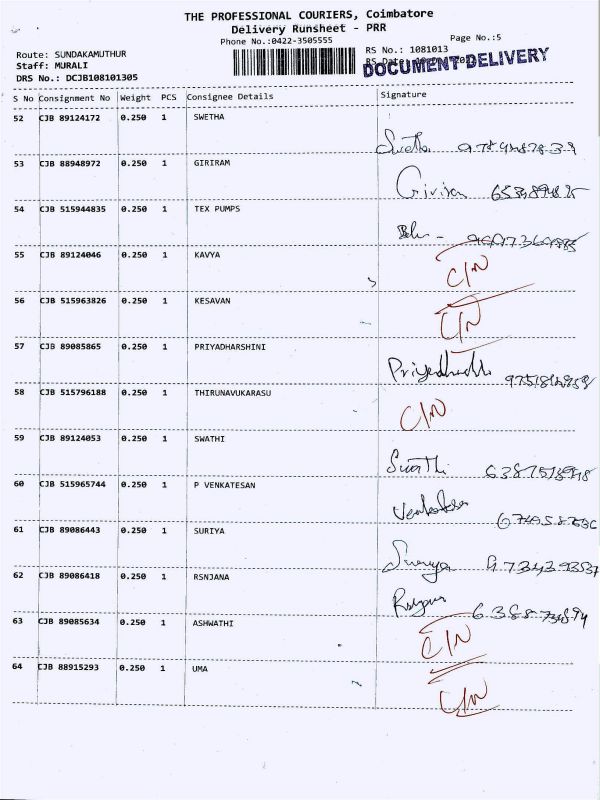 THE PROFESSIONAL COURIERS, Coimbatore
Delivery Runsheet - PRR
Phone No.:0422-3505555
Page No.:5
Route: SUNDAKAMUTHUR
RS No.: 1081013
Staff: MURALI
RS Date:
DOCUMENT DELIVERY
DRS No.: DCJB108101305
S No Consignment No Weight PCS Consignee Details Signature
52 CJB 89124172 0.250 1 SWETHA
Swetha
53 CJB 88948972 0.250 1 GIRIRAM
54 CJB 515944835 0.250 1 TEX PUMPS
55 CJB 89124046 0.250 1 KAVYA
C/N
56 CJB 515963826 0.250 1 KESAVAN
C/N
57 CJB 89085865 0.250 1 PRIYADHARSHINI
58 CJB 515796188 0.250 1 THIRUNAVUKARASU
C/N
59 CJB 89124053 0.250 1 SWATHI
Swathi
60 CJB 515965744 0.250 1 P VENKATESAN
Venkatesan
61 CJB 89086443 0.250 1 SURIYA
Suriya
62 CJB 89086418 0.250 1 RSNJANA
63 CJB 89085634 0.250 1 ASHWATHI
C/N
64 CJB 88915293 0.250 1 UMA
C/N